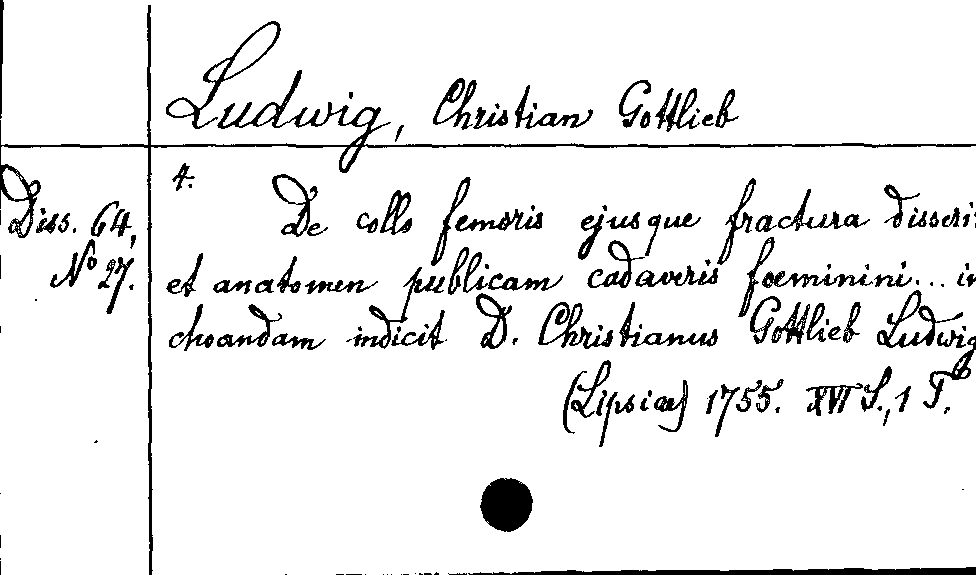 Ludwig, Christian Gottlieb
4.
Diss. 64,
No 27.
De collo femoris ejusque fractura disserit
et anatomen publicam cadaveris foeminini... in
choandam indicit D. Christianus Gottlieb Ludwig
(Lipsiae) 1755. XVI S., 1 Tb.